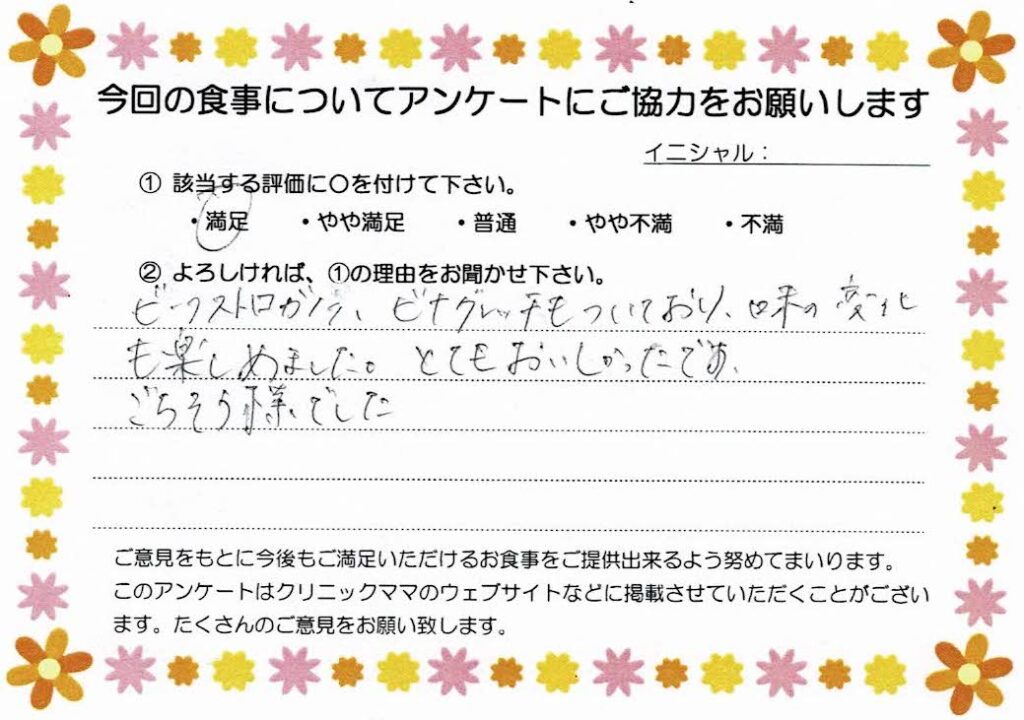 今回の食事についてアンケートにご協力をお願いします
イニシャル：
① 該当する評価に〇を付けて下さい。
・満足 ・やや満足 ・普通 ・やや不満 ・不満
② よろしければ、①の理由をお聞かせ下さい。
ビーフストロガノフ、ビナグレッチもついており、味の変化
も楽しめました。とてもおいしかったです。
ごちそう様でした
ご意見をもとに今後もご満足いただけるお食事をご提供出来るよう努めてまいります。
このアンケートはクリニックママのウェブサイトなどに掲載させていただくことがござい
ます。たくさんのご意見をお願い致します。